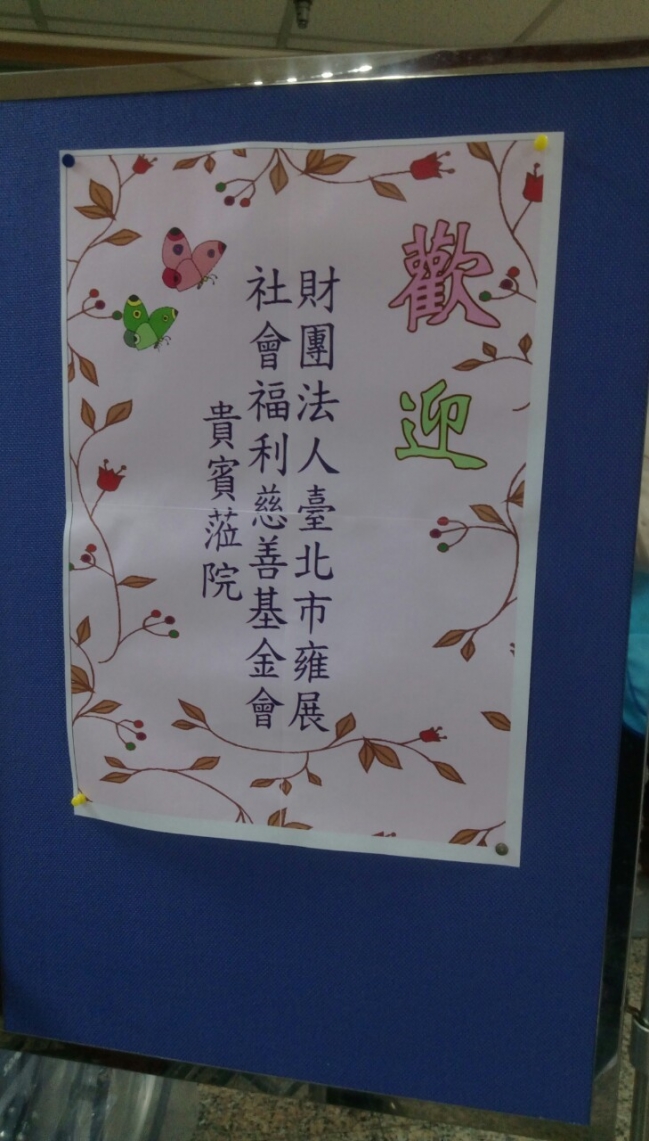 歡迎
財團法人臺北市雍展
社會福利慈善基金會
貴賓蒞院